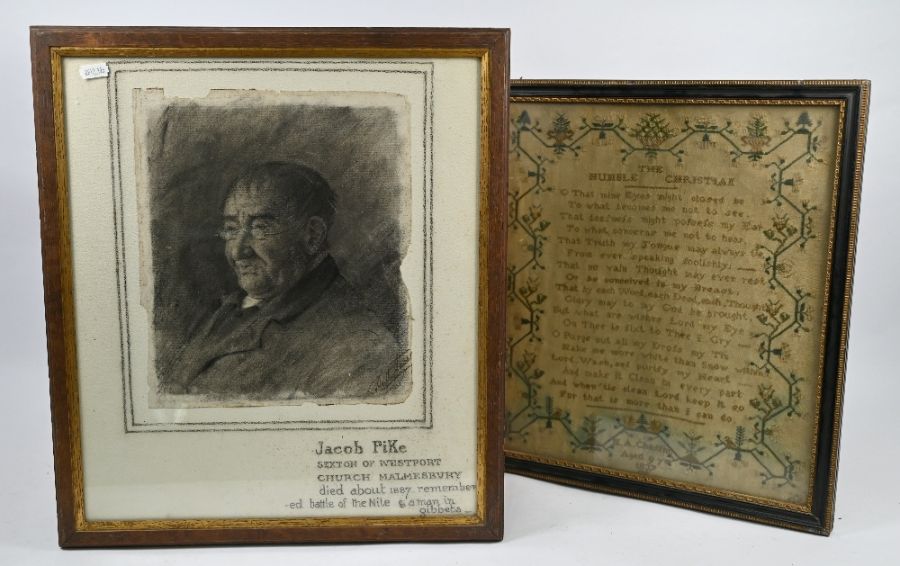 Jacob PiKe
SEXTON OF WESTPORT
CHURCH MALMESBURY
died about 1887 remember
-ed battle of the Nile & a man in
gibbets
THE
HUMBLE CHRISTIAN
O That mine Eyes might closed be
To what becomes me not to see,
That deafness might possess my Ear
To what concerns me not to hear,
That Truth my Tongue may always tie
From ever speaking foolishly,
That no vain Thought may ever rest
Or be conceived in my Breast,
That by each Word, each Deed, each Thought
Glory may to my God be brought
But what are wishes Lord my Eye
On Thee is fixt to Thee I Cry
O Purge out all my Dross my Tin
Make me more white than Snow within
Lord, Wash, and purify my Heart
And make it Clean in every part
And when 'tis clean Lord keep it so
For that is more than I can do
Aged